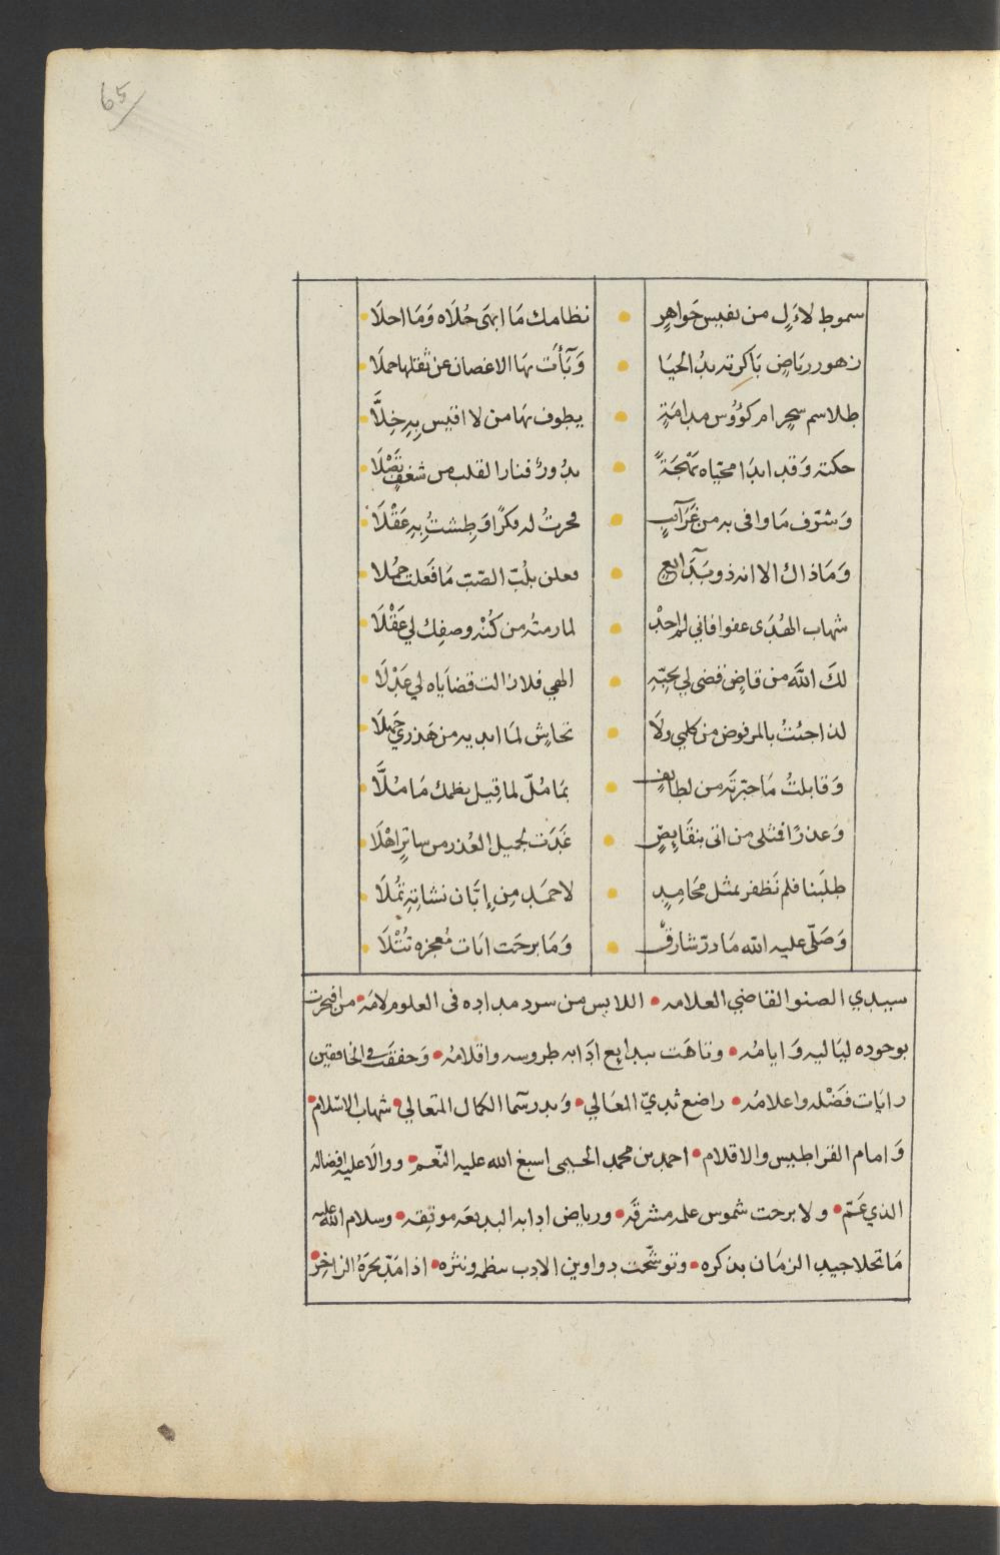 65
سموط لاءَلٍ من نفيس جَواهِرٍ • نظامك مَا ابهَى حُلَاه وَمَا احلَا
زهور ريَاضٍ بَاكرته يدُ الحيَا • وَبَأت بهَا الاغصان عن ثقلها حملَا
طلاسم سِحرٍ ام كؤوس مدامَةٍ • يطوف بهَا من لا اقيس بِهِ خِلَّا
حكته وَقد ابدَا محيّاه بَهْجَةً • بدُورٌ فنار القلب من شغفٍ تَصْلَا
وَشنّف مَا وافى به من غَرَآئبٍ • فحرتُ له فكرًا وَطِشتُ بِهِ عَقْلَا
وَمَا ذاك الا انه ذو بَدَآئعٍ • فعلن بلُبّ الصّبّ مَا فَعلت جُملا
شهاب الهُدَى عفوا فاني لم احدْ • لما رمتُه من كُنْه وصفِك لي عَقْلَا
لكَ اللهَ من قاضٍ قضى لي بحبّهِ • الهي فلا زالت قضَايَاه لي عَدْلَا
لذا جئتُ بالمرفوض من كلمي ولَا • تحاشٍ لمَا ابديه من هَذَري جَهلَا
وَقابلتُ مَا حبّرتَه من لطايفٍ • بمَا مُلّ لما قِيل بظمك مَا مُلَّا
وَعذرًا فمثلى من اتى بنقَايِصٍ • غَدَت لجميل العُذر من ساترٍ اهْلَا
طلَبنا فلم نَظفر بمثل محَامِدٍ • لاحمَد مِن إبَّان نشاتِهِ تُملَا
وَصَلّى عليه الله مَا درّ شارقٌ • وَمَا برحَت ايَات مُعجزه تُتْلَا
سيدي الصنو القاضي العلامه • اللابس من سرد مداده فى العلوم لامَه • من افتخرت
بوجوده ليَاليه وَايامُه • وتاهَت ببدايع ادَابه طروسه واقلامُه • وَخفقَت في الخافقين
رايَات فَضْله واعلامُه • راضع ثديّ المعَالي • وَبدر سَمَا الكمال المتعالي • شهاب الاسْلام •
وَامام القراطيس والاقلام • احمد بن محمد الحيمى اسبغ الله عليه النّعم • ووالَا عليه افضاله
الذي عَمّ • ولا برحت شموس علمه مشرقَه • ورياض ادابه البديعَه مونِقه • وسلام الله عليه
مَا تحلا جيد الزمَان بذكره • وتوشّحت دواوين الادب بنظمه ونثره • اذا مَدّ بحرَهُ الزاخِر •